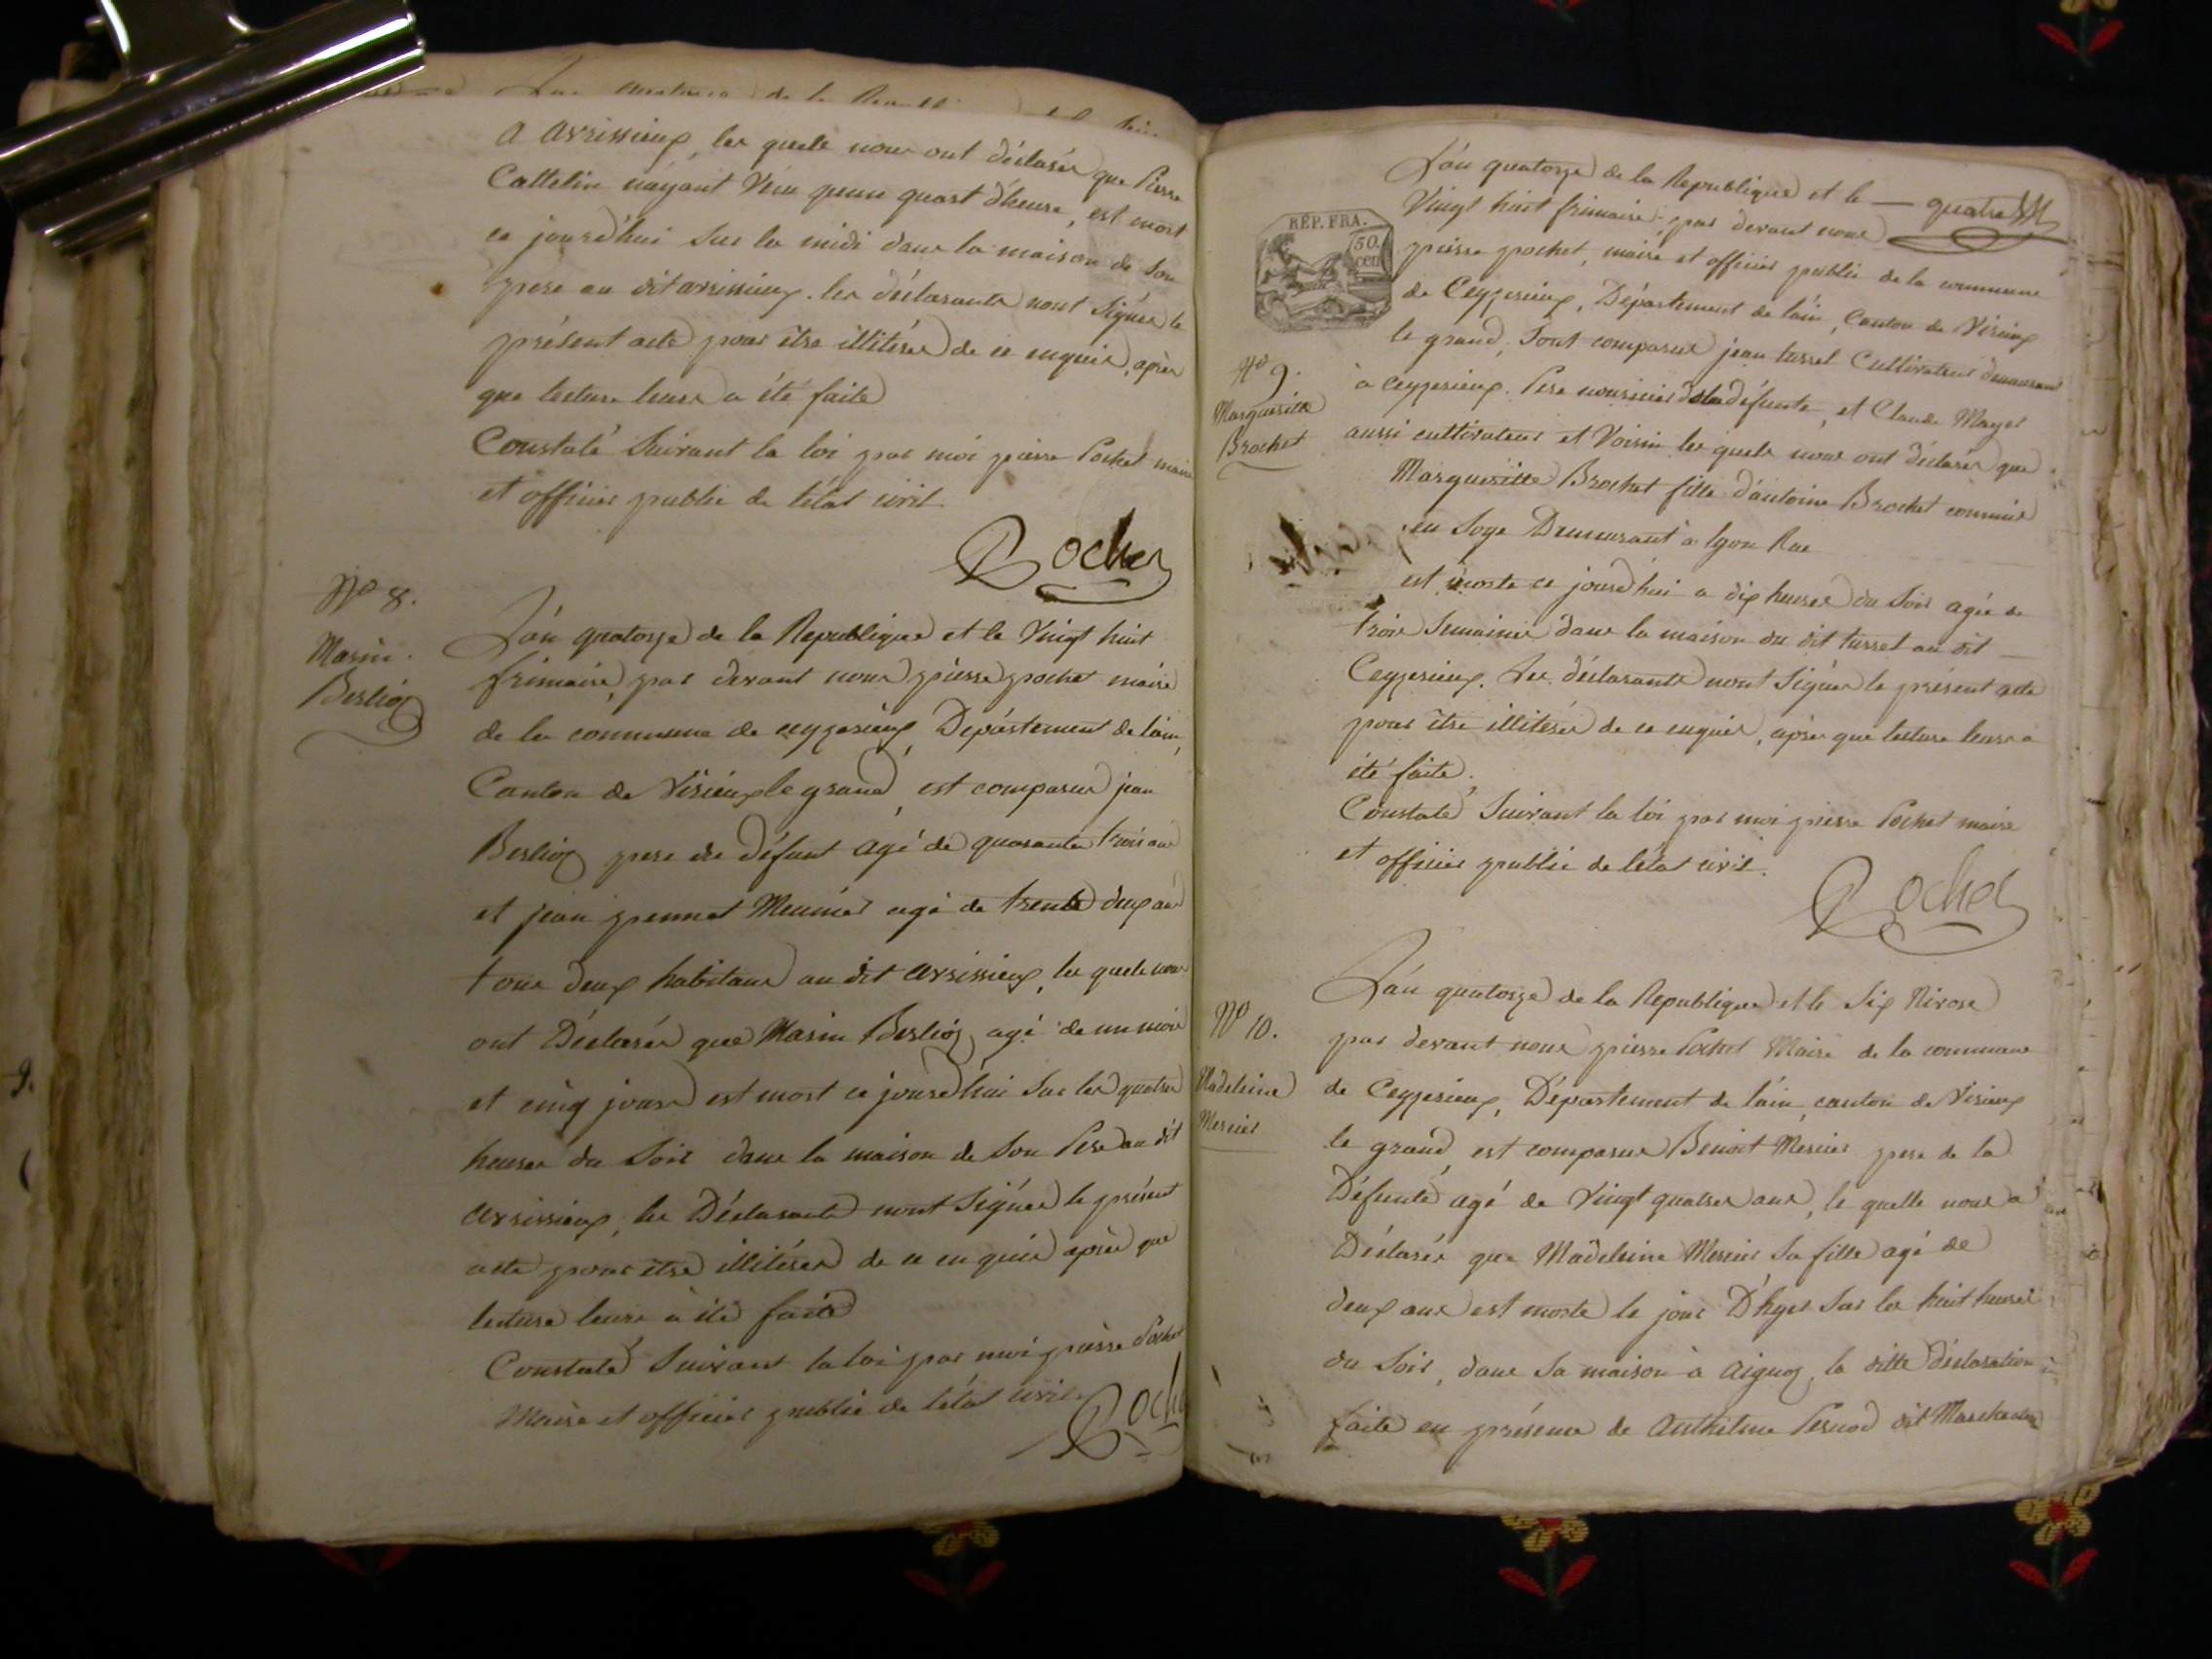 de la
A Avrissieux, les quels nous ont déclarés que Pierre
Cattelin n'ayant Vécu qu'un quart d'heure, est mort
ce jourd'hui Sur la midi dans la maison de Son
pere au dit avrissieux. les déclarants n'ont Signés le
présent acte pour être illitérés de ce enquis, après
que lecture leurs a été faite
Constaté Suivant la loi par moi pierre Pochet maire
et officier public de l'état civil.
Pochet
No 8.
Marin
Berlioz
L'an quatorze de la Republique et le Vingt huit
frimaire, par devant nous pierre pochet maire
de la commune de ceyzerieux, Département de l'ain,
Canton de Virieux le grand, est comparus jean
Berlioz pere du défunt agé de quarante trois ans
et jean Meunier agé de trente deux ans
tous deux habitans au dit avrissieux, les quels nous
ont Déclarés que Marin Berlioz, agé de un mois
et cinq jours est mort ce jourd'hui Sur les quatres
heures du Soir dans la maison de Son Pere au dit
avrissieux, les Déclarants n'ont Signés le présent
acte pour être illitérés de ce enquis après que
lecture leurs à été faite
Constaté Suivant la loi par moi pierre Pochet
Maire et officier public de l'état civil.
Poche
L'an quatorze de la Republique et le — quatre
Vingt huit frimaire, par devant nous
RÉP. FRA.
50.
cen
pierre pochet, maire et officier public de la commune
de Ceyzerieux, Département de l'ain, Canton de Virieux
le grand, Sont comparus jean turrel Cultivateur demeurant
No 9.
Marguerite
Brochet
à ceyzerieux. Pere nouricier de la défunte, et Claude Mayet
aussi cultivateur et Voisin les quels nous ont déclarés que
Marguerite Brochet fille d'antoine Brochet commis
en Soye Demeurant à lyon Rue
est morte ce jourd'hui a dix heures du Soir agée de
trois Semaines dans la maison du dit turrel au dit —
Ceyzerieux. Les déclarants n'ont Signés le présent acte
pour être illitérés de ce enquis, après que lecture leurs a
été faite.
Constaté Suivant la loi par moi pierre Pochet maire
et officier public de l'état civil.
Pochet
No 10.
Madeleine
Mercier
L'an quatorze de la Republique et le Six Nivose
par devant nous pierre Pochet Maire de la commune
de Ceyzerieux, Département de l'ain, canton de Virieux
le grand, est comparus Benoit Mercier pere de la
Défunte agé de Vingt quatres ans, le quelle nous a
Déclarés que Madeleine Mercier Sa fille agé de
deux ans est morte le jour D'hyer Sur les huit heures
du Soir, dans Sa maison à Aignoz, la ditte déclaration
faite en présence de Anthelme Pernod dit